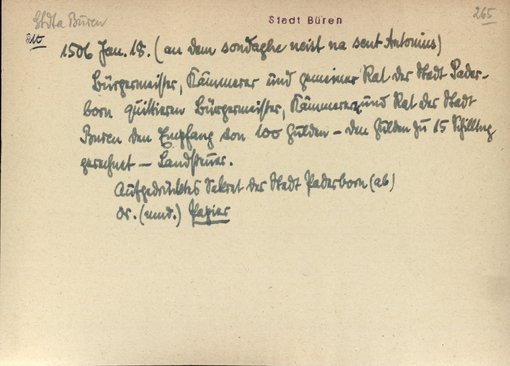 StdtA Büren
Stadt Büren
265
1506 Jan. 18. (an dem sondaghe neist na sent Antonius)
Bürgermeister, Kämmerer und gemeiner Rat der Stadt Pader-
born quittieren Bürgermeister, Kämmerer und Rat der Stadt
Buren den Empfang von 100 Gulden – den Gulden zu 15 Schilling
gerechnet – Landsteuer.
Aufgedrücktes Sekret der Stadt Paderborn (ab)
Or. (mnd.) Papier